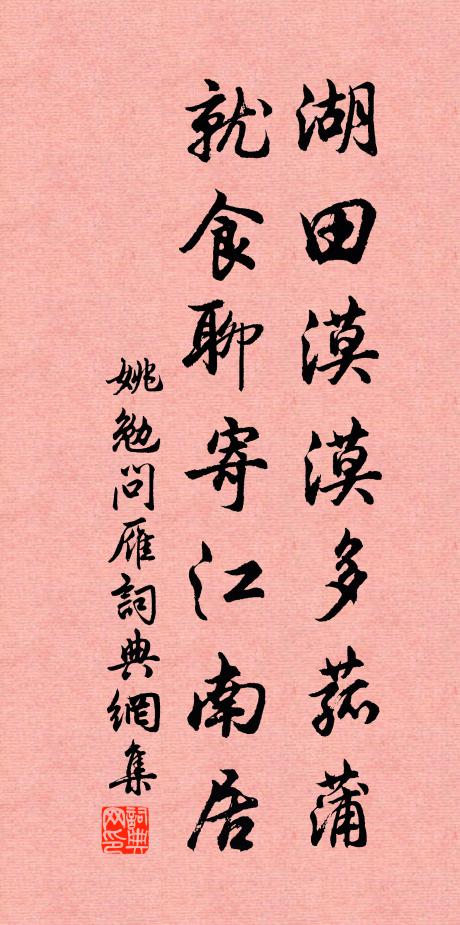 湖田漠漠多菰蒲
就食聊寄江南居
姚勉問雁詞典網集
詞典网印